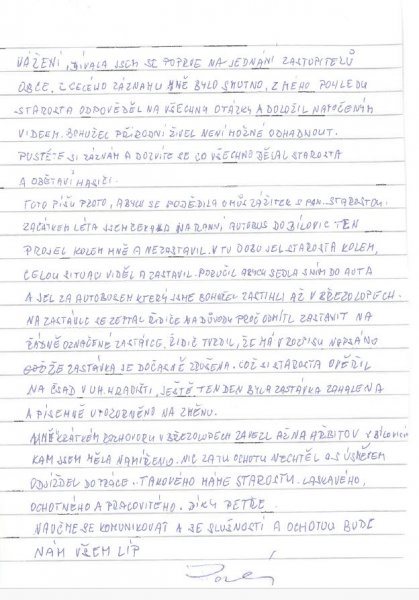 VÁŽENÍ, DÍVALA JSEM SE POPRVÉ NA JEDNÁNÍ ZASTUPITELŮ
OBCE, Z CELÉHO ZÁZNAMU MNĚ BYLO SMUTNO, Z MÉHO POHLEDU
STAROSTA ODPOVĚDĚL NA VŠECHNY OTÁZKY A DOLOŽIL NATOČENÝM
VIDEEM. BOHUŽEL PŘÍRODNÍ ŽIVEL NENÍ MOŽNÉ ODHADNOUT.
PUSTĚTE SI ZÁZNAM A DOZVÍTE SE CO VŠECHNO DĚLAL STAROSTA
A OBĚTAVÍ HASIČI.
TOTO PÍŠU PROTO, ABYCH SE PODĚLILA O MŮJ ZÁŽITEK S PAN. STAROSTOU.
ZAČÁTKEM LÉTA JSEM ČEKALA NA RANNÍ AUTOBUS DO BÍLOVIC TEN
PROJEL KOLEM MNĚ A NEZASTAVIL. V TU DOBU JEL STAROSTA KOLEM,
CELOU SITUACI VIDĚL A ZASTAVIL. PORUČIL ABYCH SEDLA S NÍM DO AUTA
A JEL ZA AUTOBUSEM KTERÝ JSME BOHUŽEL ZASTIHLI AŽ V BŘEZOLUPECH.
NA ZASTÁVCE SE ZEPTAL ŘIDIČE NA DŮVODY PROČ ODMÍTL ZASTAVIT NA
ŘÁDNĚ OZNAČENÉ ZASTÁVCE. ŘIDIČ TVRDIL, ŽE MÁ V ROZPISU NAPSÁNO
ŽE ZASTÁVKA SE DOČASNĚ ZRUŠENA. COŽ SI STAROSTA OVĚŘIL
NA ČSAD V UH. HRADIŠTI, JEŠTĚ TEN DEN BYLA ZASTÁVKA ZAHALENA
A PÍSEMNĚ UPOZORNĚNO NA ZMĚNU.
MNĚ KRÁTKÉM ROZHOVORU V BŘEZOLUPECH ZAVEZL AŽ NA HŘBITOV V BÍLOVICÍCH
KAM JSEM MĚLA NAMÍŘENO. NIC ZA TU OCHOTU NECHTĚL A S ÚSMĚVEM
ODJÍŽDĚL DO PRÁCE. TAKOVÉHO MÁME STAROSTU. LASKAVÉHO,
OCHOTNÉHO A PRACOVITÉHO. DÍKY PETŘE.
NAUČME SE KOMUNIKOVAT A SE SLUŠNOSTÍ A OCHOTOU BUDE
NÁM VŠEM LÍP